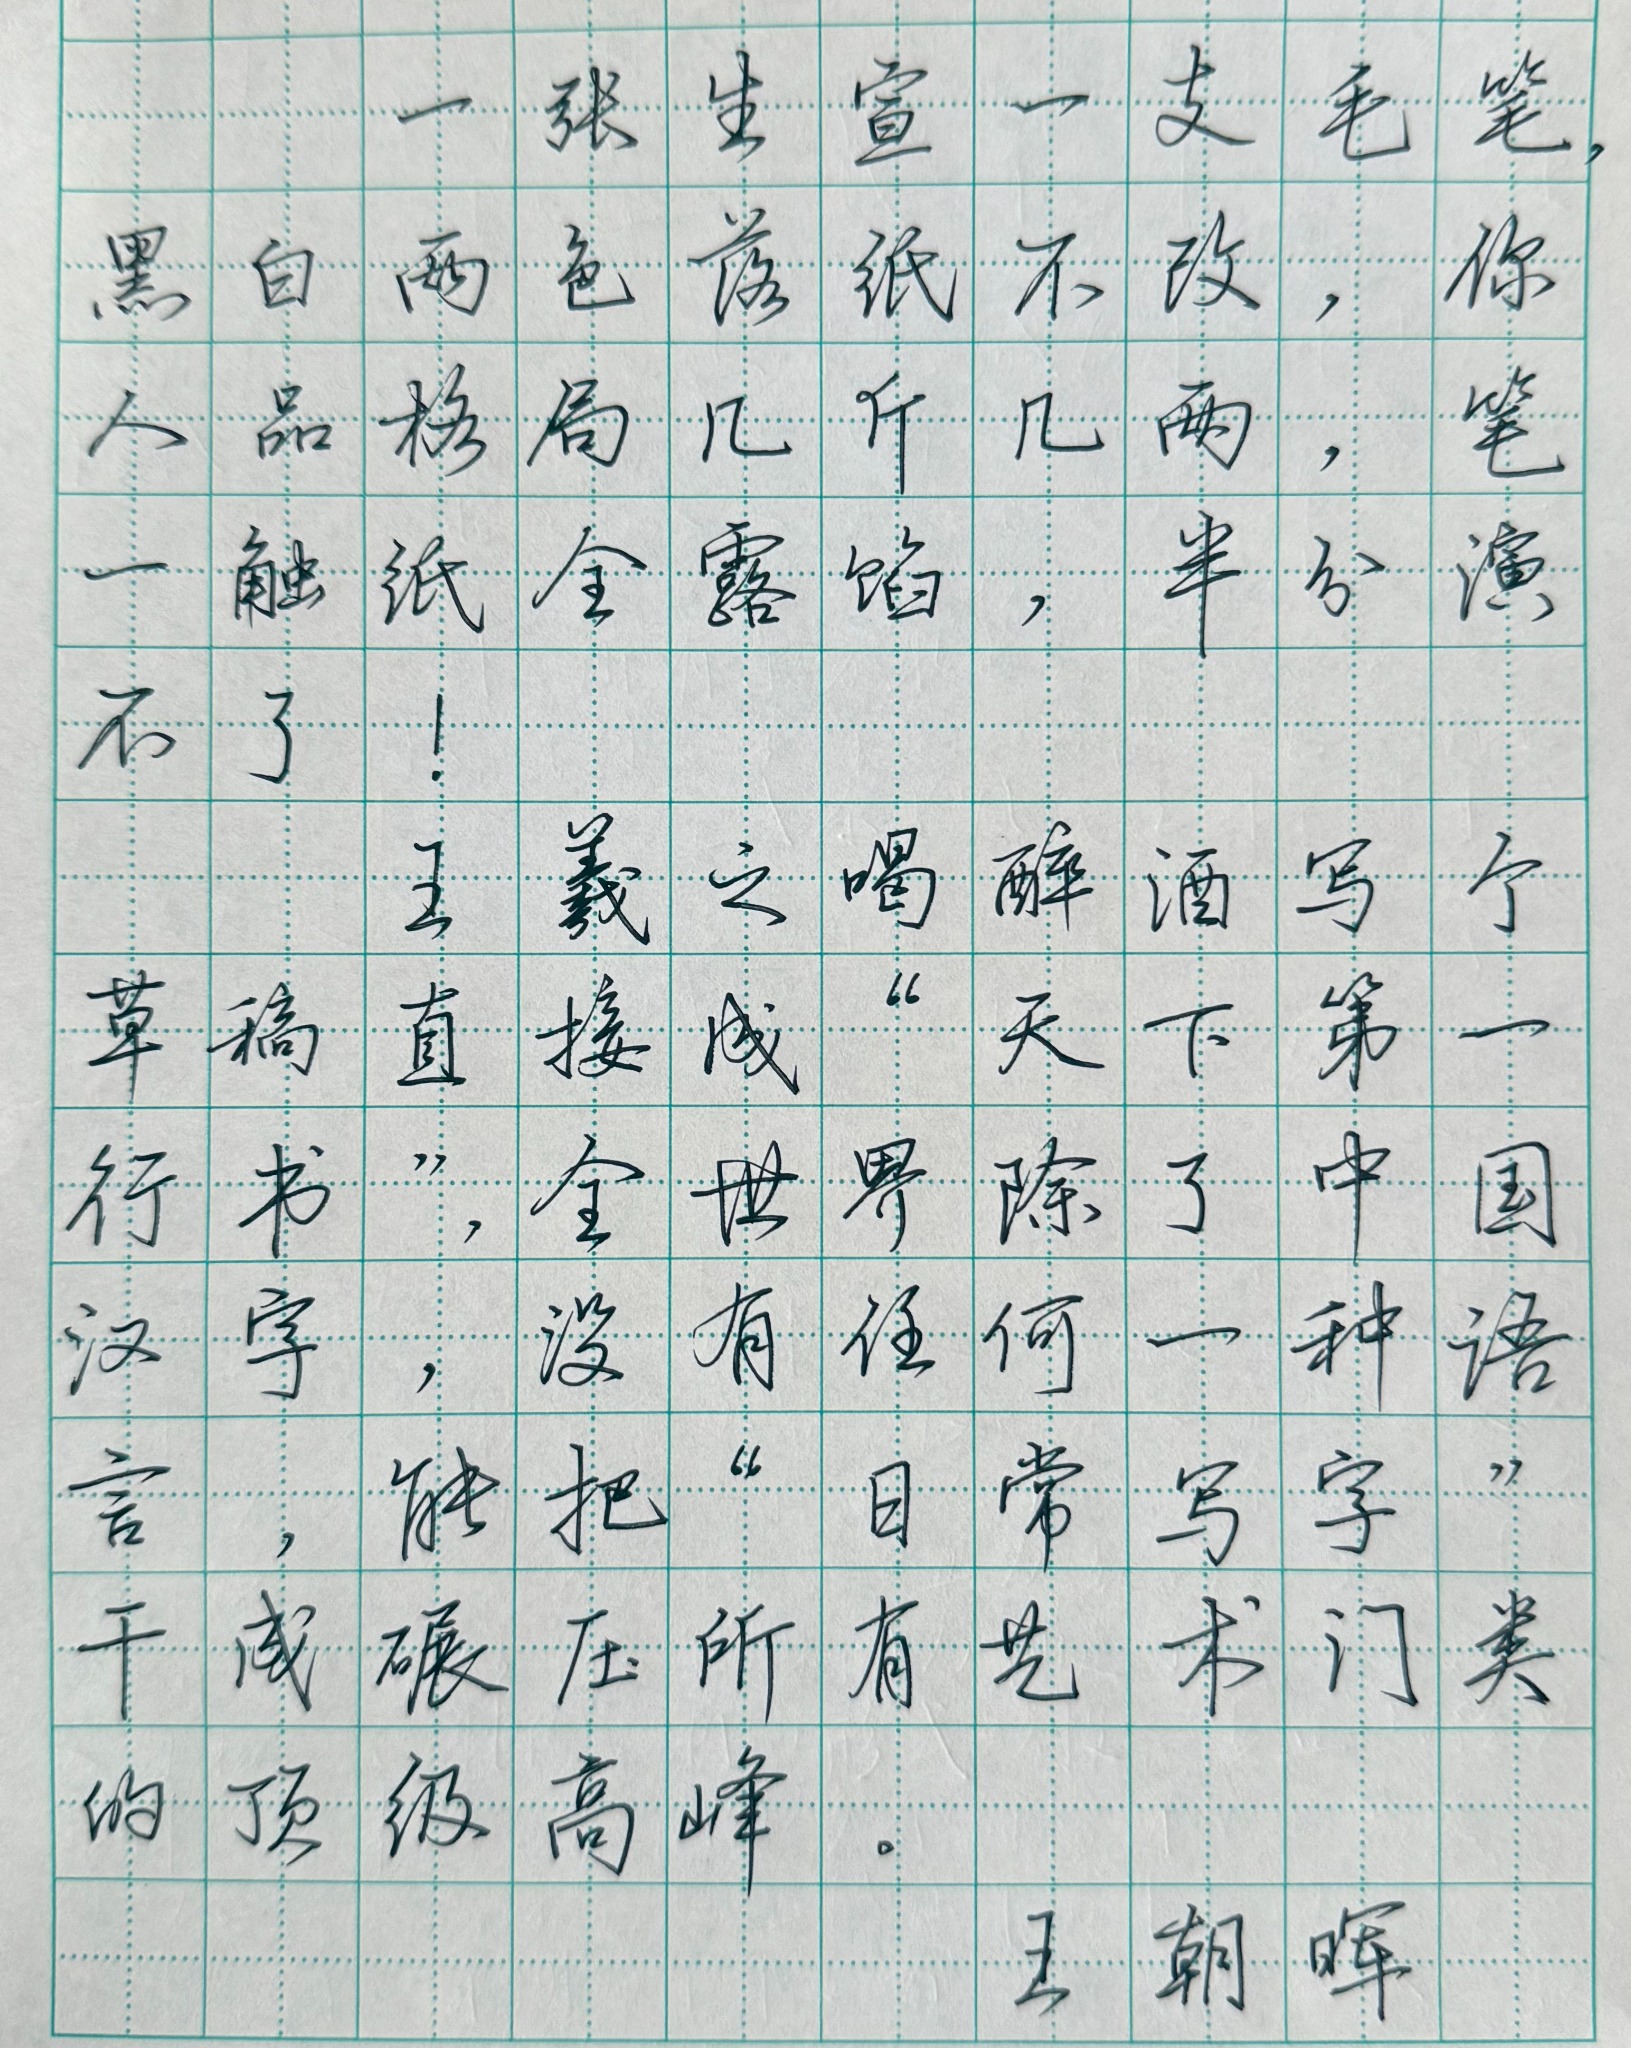 一张生宣一支毛笔，
黑白两色落纸不改，你
人品格局几斤几两，笔
一触纸全露馅，半分演
不了！
王羲之喝醉酒写个
草稿直接成“天下第一
行书”，全世界除了中国
汉字，没有任何一种语
言，能把“日常写字”
干成碾压所有艺术门类
的顶级高峰。
王朝晖